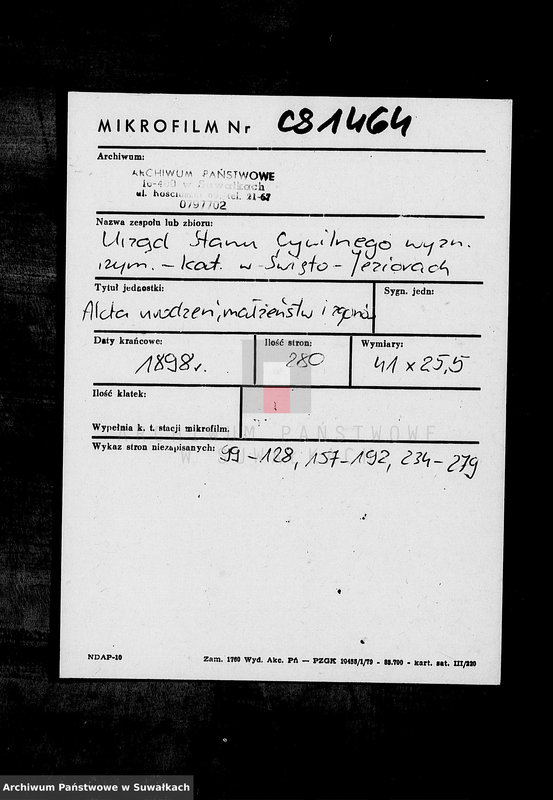 MIKROFILM Nr C81464
Archiwum:
ARCHIWUM PAŃSTWOWE
16-400 w Suwałkach
ul. Kościuszki tel. 21-67
0797702
Nazwa zespołu lub zbioru:
Urząd Stanu Cywilnego wyzn.
rzym. - kat. w Święto - Jeziorach
Tytuł jednostki:
Sygn. jedn:
Akta urodzeń, małżeństw i zgonów
Daty krańcowe:
Ilość stron:
Wymiary:
1898 r.
280
41 x 25,5
Ilość klatek:
Wypełnia k. t. stacji mikrofilm.
Wykaz stron niezapisanych: 99 - 128, 157 - 192, 234 - 279
PAŃSTWOWE
NDAP-10
Zam. 1760 Wyd. Akc. Pń — PZGK 10455/I/79 - 85.700 - kart. sat. III/220
Archiwum Państwowe w Suwałkach